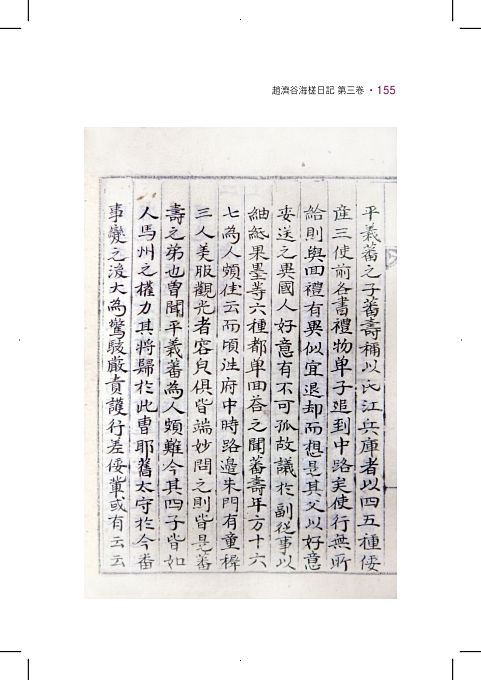 趙濟谷海槎日記 第三卷 · 155
平義蕃之子蕃壽稱以氏江兵庫者以四五種倭
産三使前各書禮物单子追到中路矣使行無所
給則與回禮有異似宜退却而想是其父以好意
委送之異國人好意有不可孤故議於副從事以
紬紙果墨等六種都单回答之聞蕃壽年方十六
七為人頗佳云而頃往府中時路邊朱門有童穉
三人美服觀光者容皃俱皆端妙問之則皆是蕃
壽之弟也曽聞平義蕃為人頗難今其四子皆如
人馬州之權力其將歸於此曹耶舊太守於今番
事變之後大為驚駭嚴責護行差倭軰或有云云